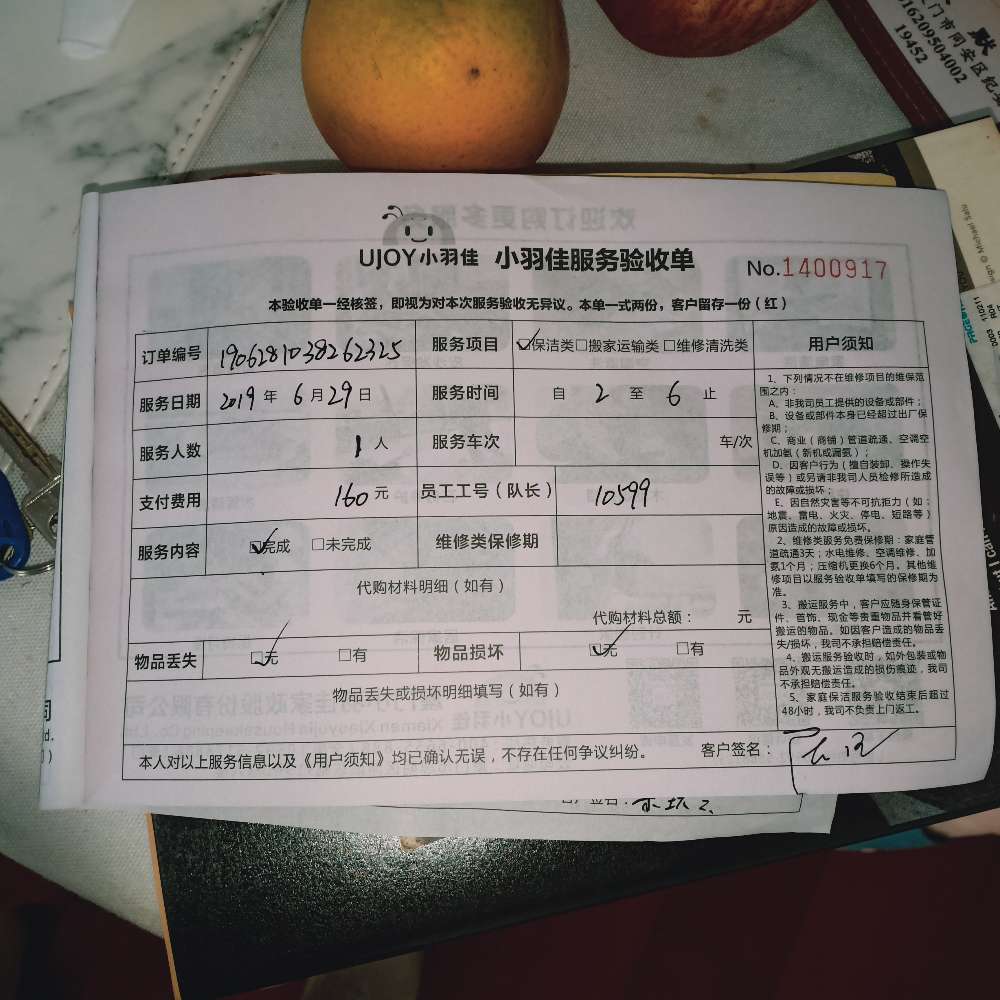 默
门市同安区纪
16209504002
19452
ign © Michael Sato
110211
R04
0003
欢迎订购更多服
UJOY小羽佳 小羽佳服务验收单
No.1400917
本验收单一经核签，即视为对本次服务验收无异议。本单一式两份，客户留存一份（红）
订单编号 1906281038262325 服务项目 ☑保洁类□搬家运输类□维修清洗类 用户须知
服务日期 2019年 6月29日 服务时间 自 2 至 6 止
服务人数 1人 服务车次 车/次
支付费用 160元 员工工号（队长） 10599
服务内容 ☑完成 □未完成 维修类保修期
代购材料明细（如有）
代购材料总额： 元
物品丢失 ☑无 □有 物品损坏 ☑无 □有
物品丢失或损坏明细填写（如有）
1、下列情况不在维修项目的维保范
围之内：
A、非我司员工提供的设备或部件；
B、设备或部件本身已经超过出厂保
修期；
C、商业（商铺）管道疏通、空调空
机加氨（新机或漏氨）；
D、因客户行为（擅自装卸、操作失
误等）或另请非我司人员检修所造成
的故障或损坏；
E、因自然灾害等不可抗拒力（如：
地震、雷电、火灾、停电、短路等）
原因造成的故障或损坏。
2、维修类服务免费保修期：家庭管
道疏通3天；水电维修、空调维修、加
氨1个月；压缩机更换6个月。其他维
修项目以服务验收单填写的保修期为
准。
3、搬运服务中，客户应随身保管证
件、首饰、现金等贵重物品并看管好
搬运的物品。如因客户造成的物品丢
失/损坏，我司不承担赔偿责任。
4、搬运服务验收时，如外包装或物
品外观无搬运造成的损伤痕迹，我司
不承担赔偿责任。
5、家庭保洁服务验收结束后超过
48小时，我司不负责上门返工。
本人对以上服务信息以及《用户须知》均已确认无误，不存在任何争议纠纷。 客户签名：
客户签名：